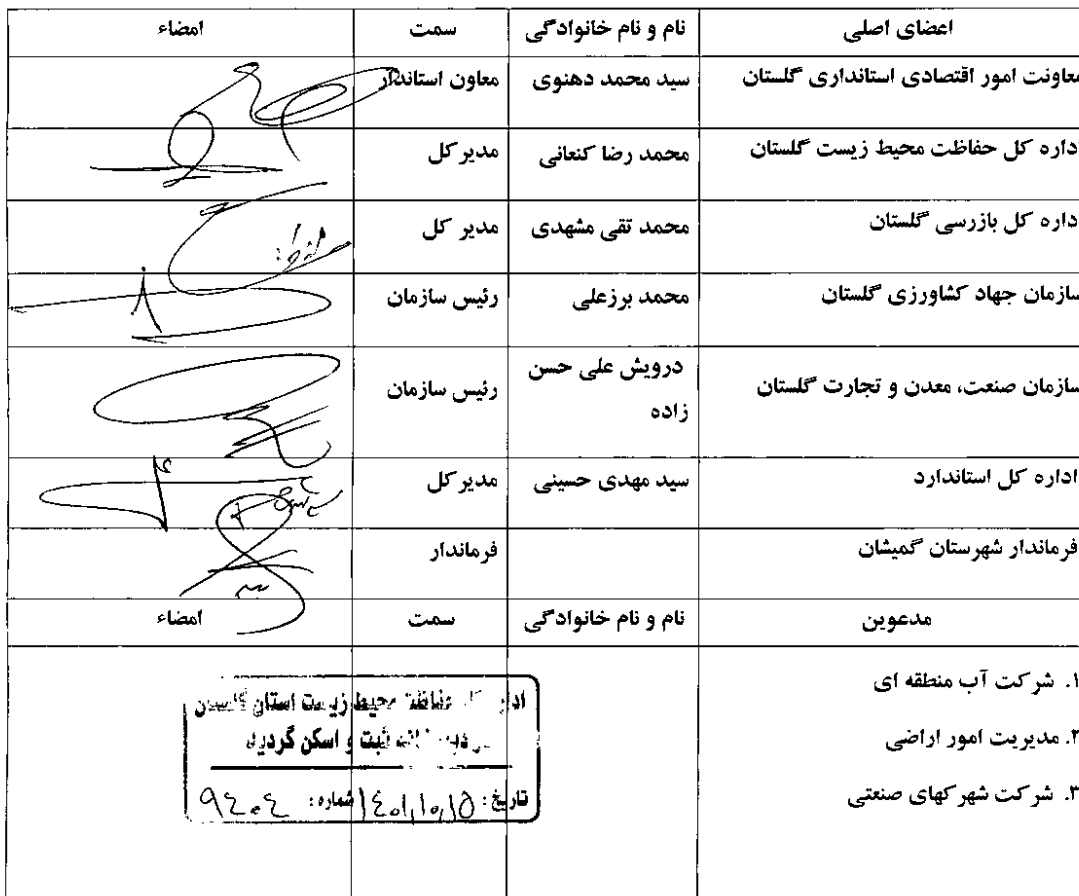 اعضای اصلی نام و نام خانوادگی سمت امضاء
معاونت امور اقتصادی استانداری گلستان سید محمد دهنوی معاون استاندار
داره کل حفاظت محیط زیست گلستان محمد رضا کنعانی مدیر کل
داره کل بازرسی گلستان محمد تقی مشهدی مدیر کل
سازمان جهاد کشاورزی گلستان محمد برزعلی رئیس سازمان
سازمان صنعت، معدن و تجارت گلستان درویش علی حسن رئیس سازمان
زاده
اداره کل استاندارد سید مهدی حسینی مدیر کل
فرماندار شهرستان گمیشان فرماندار
مدعوین نام و نام خانوادگی سمت امضاء
۱. شرکت آب منطقه ای
۲. مدیریت امور اراضی
۳. شرکت شهرکهای صنعتی
محیط زیست استان
ثبت و اسکن گردید
تاریخ: ۱۴۰۱,۱۰,۱۵ شماره: ۹۴۰۴